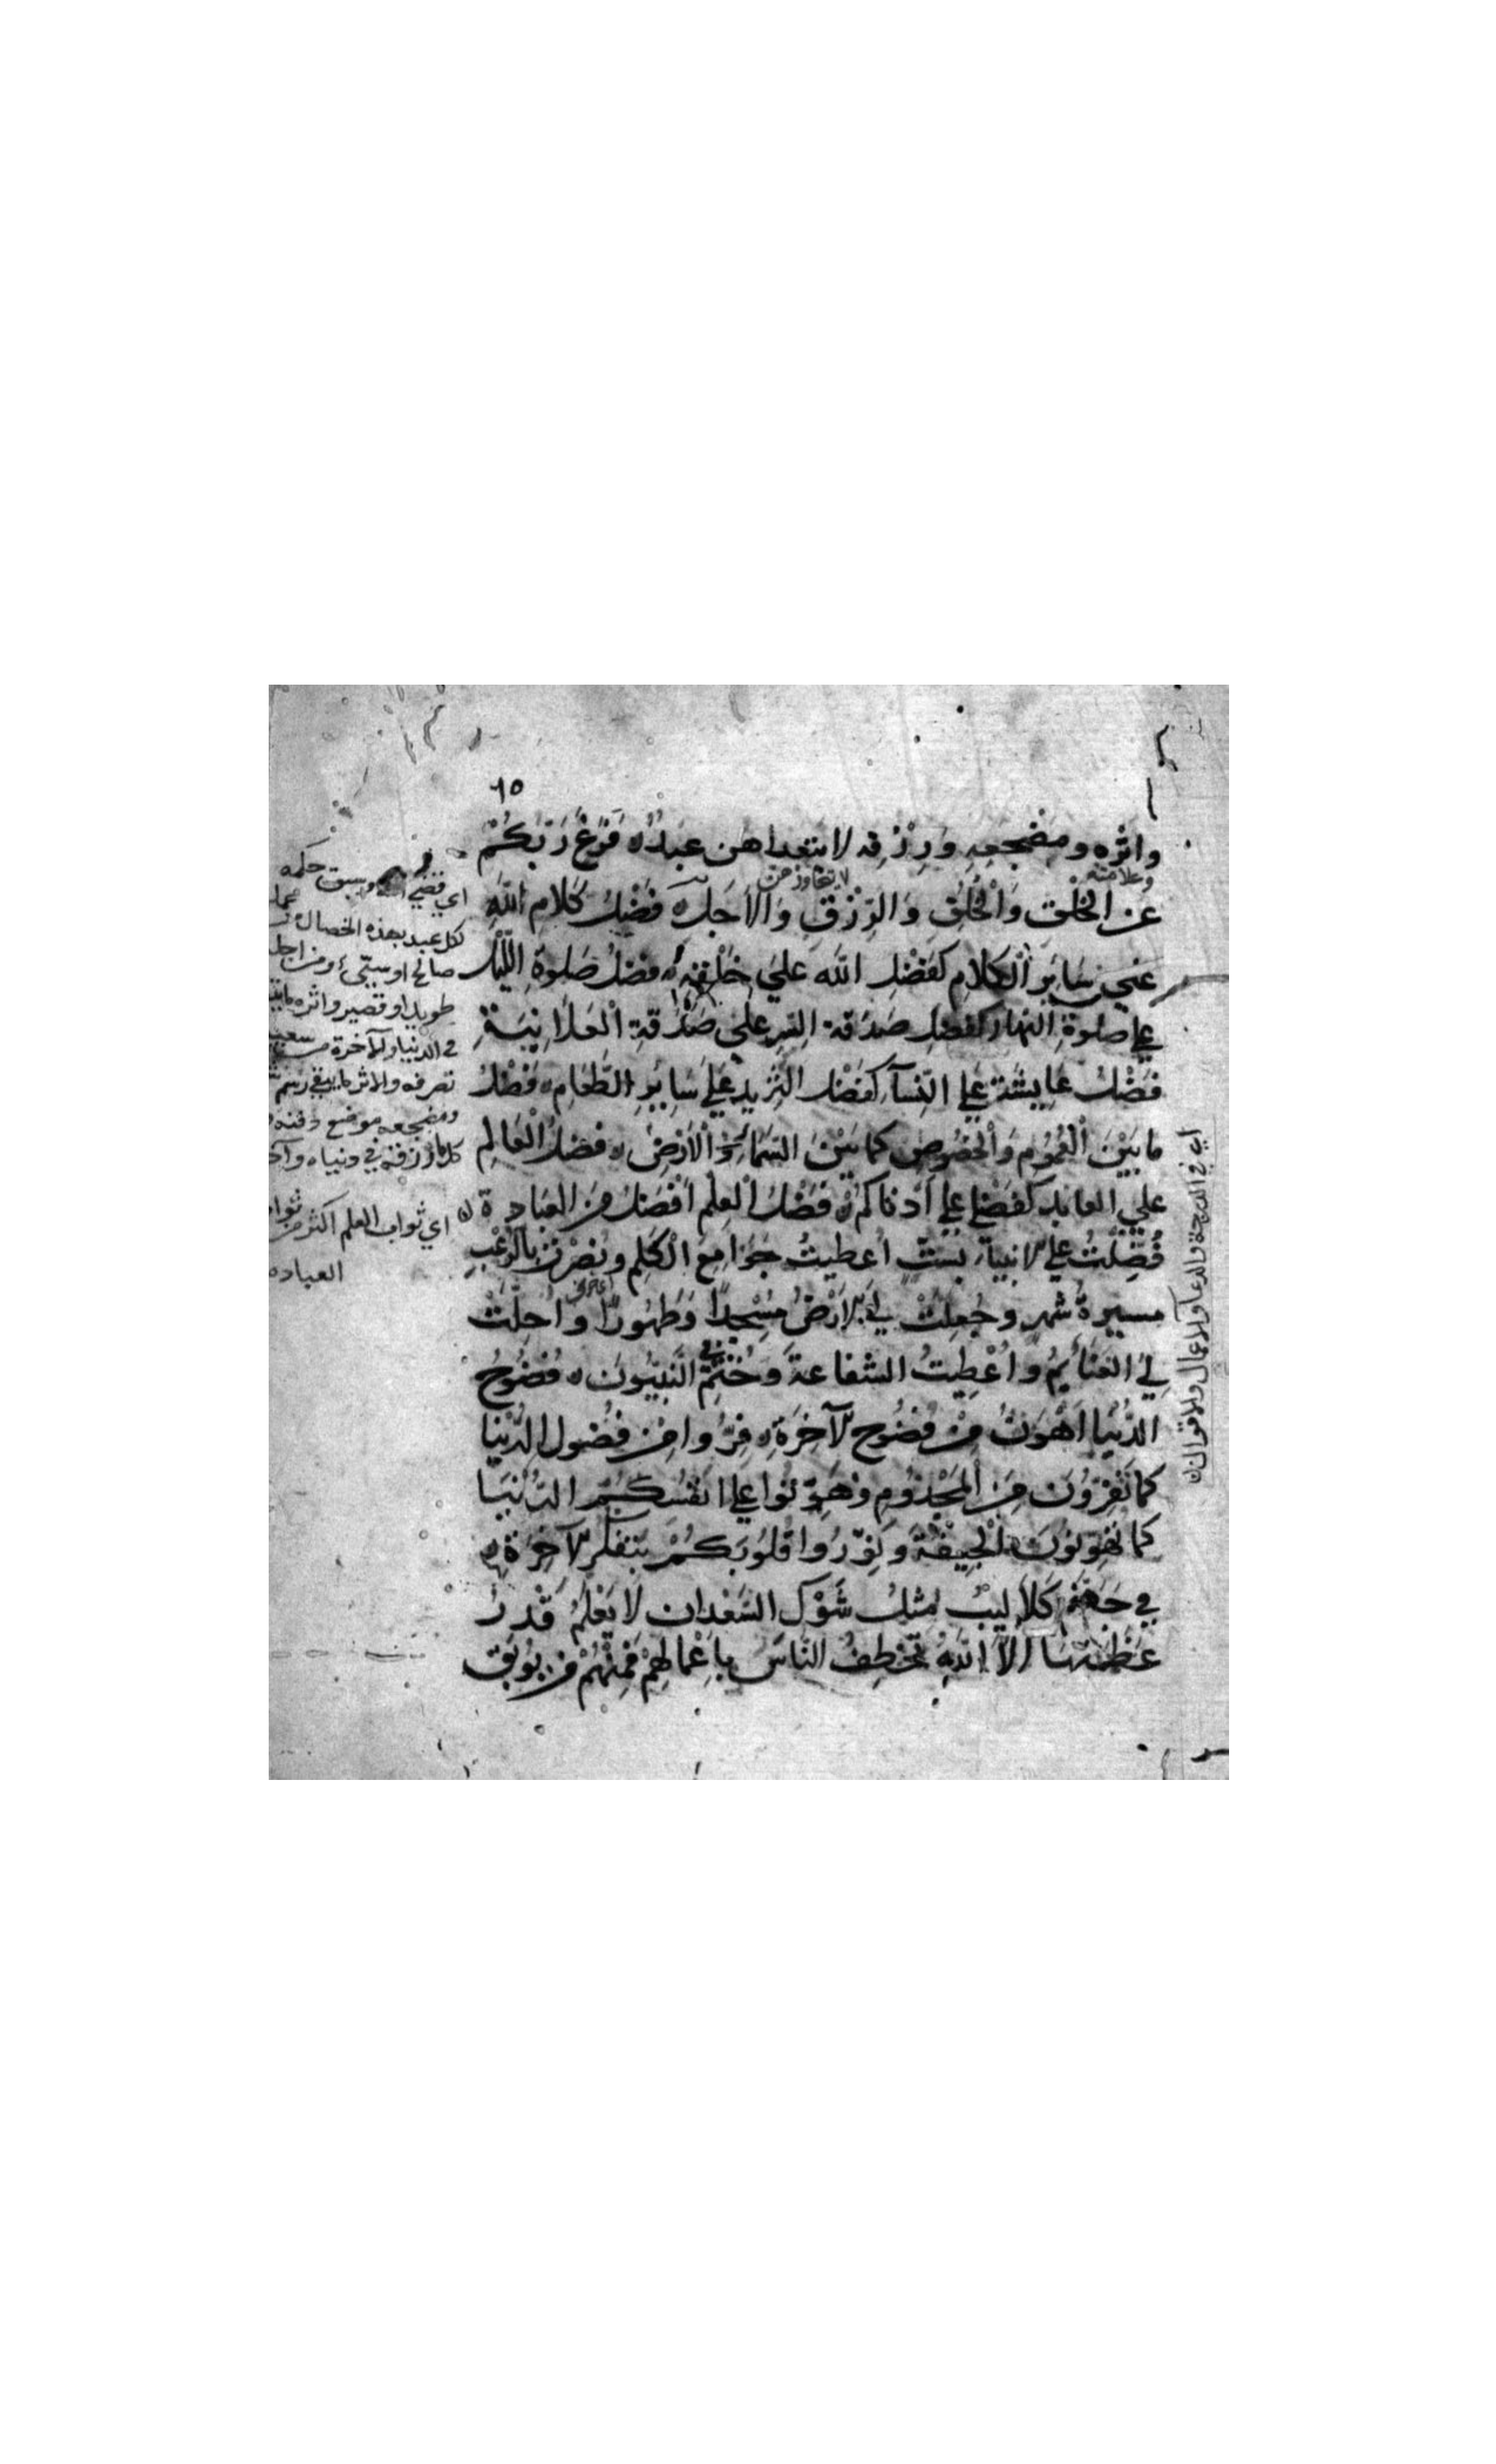 ٦٥
واثره ومضجعه وَرِزْقه لا يتعداهن عبدٌ ه فَرَغَ رَبّكُمْ
وعلامته
لا يتجاوزهن
عن الخَلْق وَالْخُلُقِ وَالرِّزْقِ وَالأَجَلِ ه فَضْلُ كَلَامِ اللهِ
على سَايِرِ الْكَلَامِ كَفَضْلِ اللهِ عَلَى خَلْقِهِ ه فضلُ صَلوةِ اللَّيْلِ
على صلوةِ النهار كفضلِ صَدَقةِ السِّرِ على صَدَقَةِ الْعَلَانِيَةِ
فَضْلُ عَايِشَةَ على النِّسآءِ كفَضْل الثَّرِيدِ عَلَى سَايِرِ الطَّعَامِ ه فَضْلُ
مابَيْنَ الْعُمُومِ وَالْخُصُوصِ كما بَيْنَ السَّمَاءِ وَالْأَرْضِ ه فضلُ الْعَالِمِ
على العابد كفضلي على أَدْناكم ه فَضْلُ الْعِلْمِ افْضَلُ مِنَ العبادةِ ه
فُضِّلْتُ على الانبياء بستٍّ اُعطيتُ جَوَامِعَ الْكَلِمِ ونُصِرْتُ بِالرُّعْبِ
مسيرةَ شهرٍ وجُعِلَتْ لِيَ الارْضُ مَسْجِدًا وَطَهُورًا واُحِلَّتْ
لِيَ الغنَائِمُ واُعْطِيتُ الشفاعةَ وَخُتِمَ بي النَّبِيُّونَ ه فُضُوحُ
الدُّنْيا اَهْوَنُ مِنْ فُضُوحِ الآخِرَةِ ه فِرُّوا مِنْ فُضُولِ الدُّنْيَا
كما تَفِرُّونَ مِنَ الْمَجْذُومِ وَهَوِّنُوا على انفُسكُمُ الدُّنْيَا
كما تُهَوِّنُونَ الْجِيفَةَ وَنَوِّرُوا قُلُوبَكُمْ بتفكُّرِ الآخِرَةِ ه
في جَهَنَّمَ كَلَالِيبُ مِثْلُ شَوْكِ السَّعْدانِ لَا يَعْلَمُ قَدْرَ
عَظَمَتِهَا الاَّ اللهُ تَخْطِفُ النَّاسَ بِاَعْمَالِهِمْ فَمِنْهُمْ مَنْ يُوبَقُ
اي قضي الله وسبق حكمه
لكل عبد بهذه الخصال
صالح او سيّئ ومن اجل
طويل او قصير واثره
في الدنيا والآخرة من
تصرفه والاثر ما يبقى رسم
ومضجعه موضع دفنه
كل ما رزقه في دنياه
اي ثواب العلم اكثر من ثواب
العباده
اي في الدرجة والدعا والاعمال والاقوال